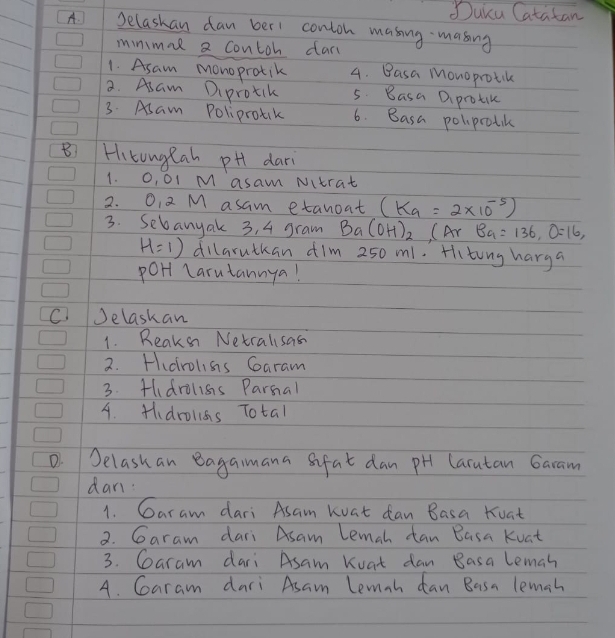 Buku Catatan
A. Jelaskan dan beri contoh masing-masing
minimal 2 contoh dari
1. Asam Monoprotik 4. Basa Monoprotik
2. Asam Diprotik 5. Basa Diprotik
3. Asam Poliprotik 6. Basa poliprotik
B) Hitunglah pH dari
1. 0,01 M asam Nitrat
2. 0,2 M asam etanoat (Ka = 2x10⁻⁵)
3. Sebanyak 3,4 gram Ba(OH)₂ (Ar Ba = 136, O=16,
H=1) dilarutkan dlm 250 ml. Hitung harga
pOH larutannya!
C. Jelaskan
1. Reaksi Netralisasi
2. Hidrolisis Garam
3. Hidrolisis Parsial
4. Hidrolisis Total
D. Jelaskan Bagaimana sifat dan pH larutan Garam
dari:
1. Garam dari Asam Kuat dan Basa Kuat
2. Garam dari Asam Lemah dan Basa Kuat
3. Garam dari Asam Kuat dan Basa Lemah
4. Garam dari Asam Lemah dan Basa lemah